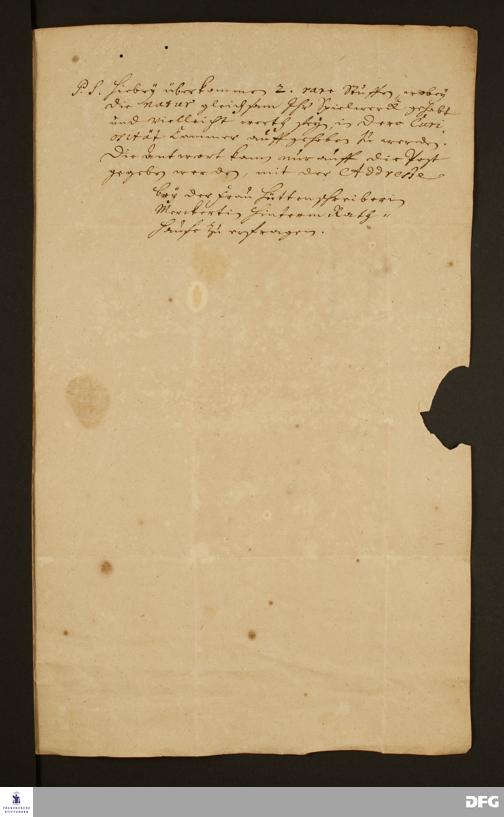 P. S. Hiebey überkommen 2. rare Stuffen, wobey
die Natur gleichsam Ihr Spielwerck gehabt
und vielleicht werth seyn, in Dero Curi-
osität Cammer auffgehoben zu werden.
Die Antwort kann nur auff die Post
gegeben werden, mit der Addresse
bey der Frau Hüttenschreiberin
Merckertin hinterm Rath-
hause zu erfragen.
FRANCKESCHE
STIFTUNGEN
DFG